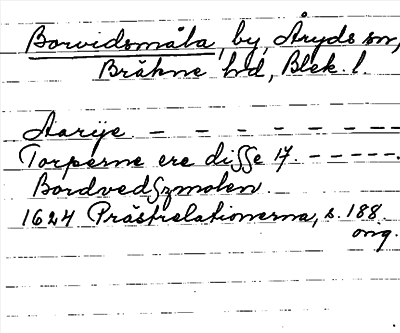 Borvidsmåla, by, Åryds sn,
Bräkne hd, Blek. l.
Aarije – – – – – – –
Torperne ere disse 17. – – – – –
Bordvedszmolen.
1624 Prästrelationerna, s. 188
orig.